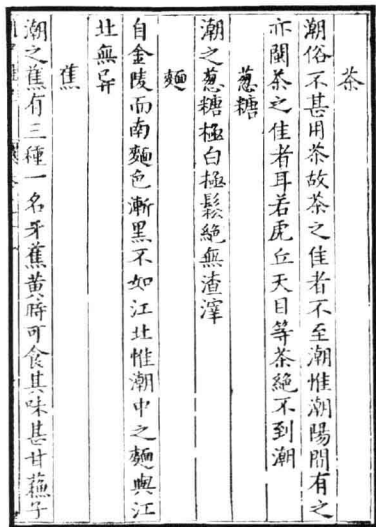 茶
潮俗不甚用茶故茶之佳者不至潮惟潮陽間有之
亦閩茶之佳者耳若虎丘天目等茶絕不到潮
葱糖
潮之葱糖極白極鬆絕無渣滓
麵
自金陵而南麵色漸黑不如江北惟潮中之麵與江
北無异
蕉
潮之蕉有三種一名牙蕉黄時可食其味甚甘蘓子